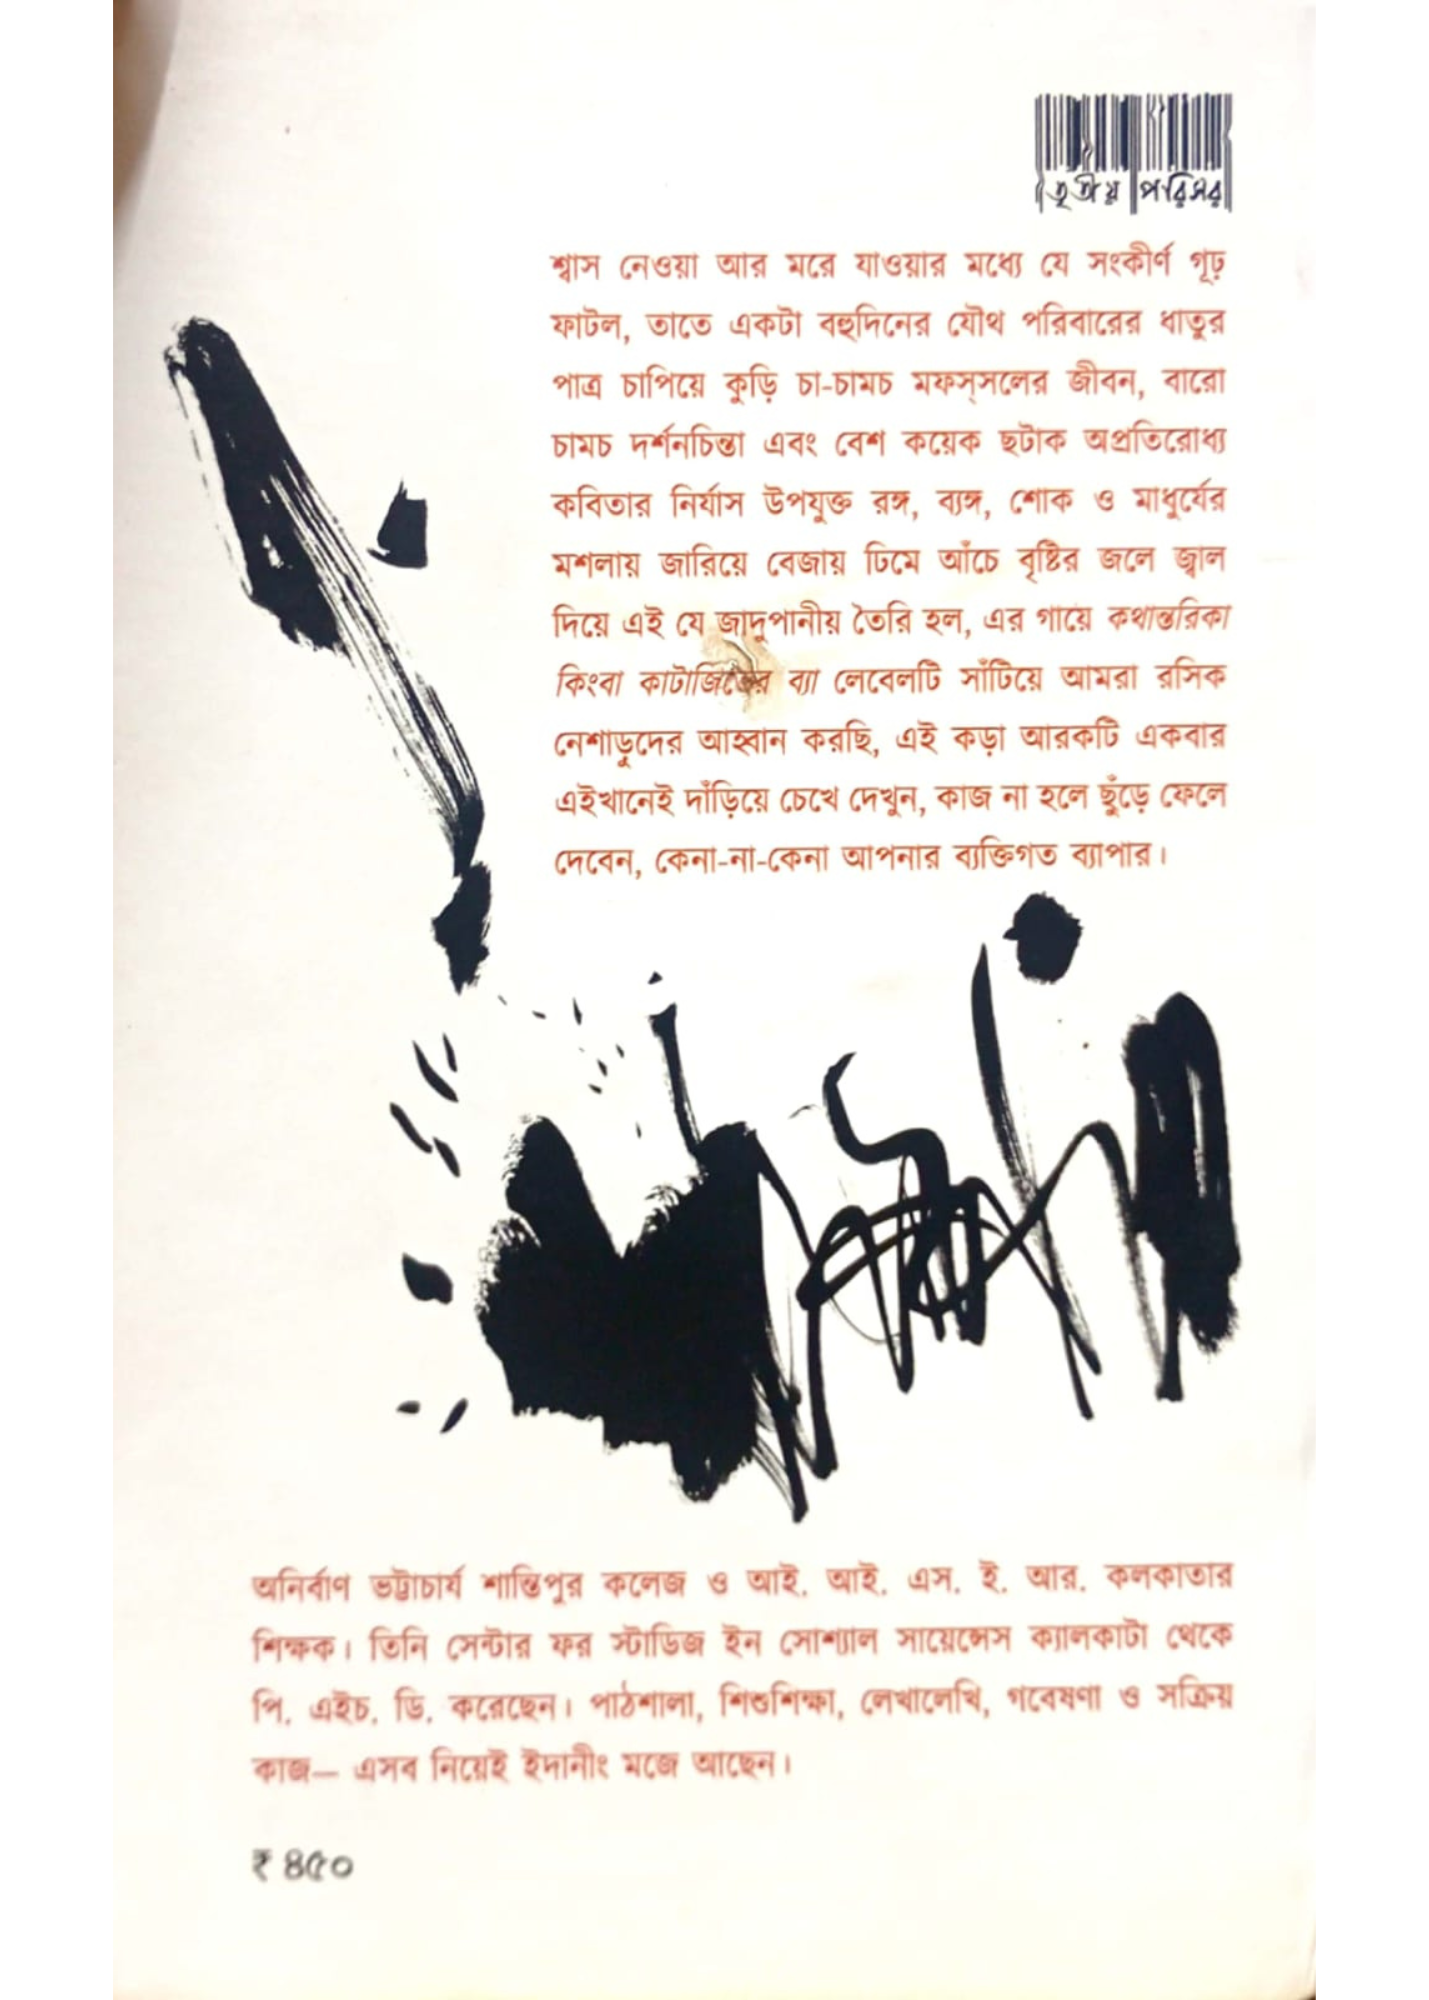 তৃতীয় পরিসর
শ্বাস নেওয়া আর মরে যাওয়ার মধ্যে যে সংকীর্ণ গূঢ়
ফাটল, তাতে একটা বহুদিনের যৌথ পরিবারের ধাতুর
পাত্র চাপিয়ে কুড়ি চা-চামচ মফস্‌সলের জীবন, বারো
চামচ দর্শনচিন্তা এবং বেশ কয়েক ছটাক অপ্রতিরোধ্য
কবিতার নির্যাস উপযুক্ত রঙ্গ, ব্যঙ্গ, শোক ও মাধুর্যের
মশলায় জারিয়ে বেজায় ঢিমে আঁচে বৃষ্টির জলে জ্বাল
দিয়ে এই যে জাদুপানীয় তৈরি হল, এর গায়ে কথান্তরিকা
কিংবা ব্যা লেবেলটি সাঁটিয়ে আমরা রসিক
নেশাড়ুদের আহ্বান করছি, এই কড়া আরকটি একবার
এইখানেই দাঁড়িয়ে চেখে দেখুন, কাজ না হলে ছুঁড়ে ফেলে
দেবেন, কেনা-না-কেনা আপনার ব্যক্তিগত ব্যাপার।
অনির্বাণ ভট্টাচার্য শান্তিপুর কলেজ ও আই. আই. এস. ই. আর. কলকাতার
শিক্ষক। তিনি সেন্টার ফর স্টাডিজ ইন সোশ্যাল সায়েন্সেস ক্যালকাটা থেকে
পি. এইচ. ডি. করেছেন। পাঠশালা, শিশুশিক্ষা, লেখালেখি, গবেষণা ও সক্রিয়
কাজ— এসব নিয়েই ইদানীং মজে আছেন।
₹ ৪৫০